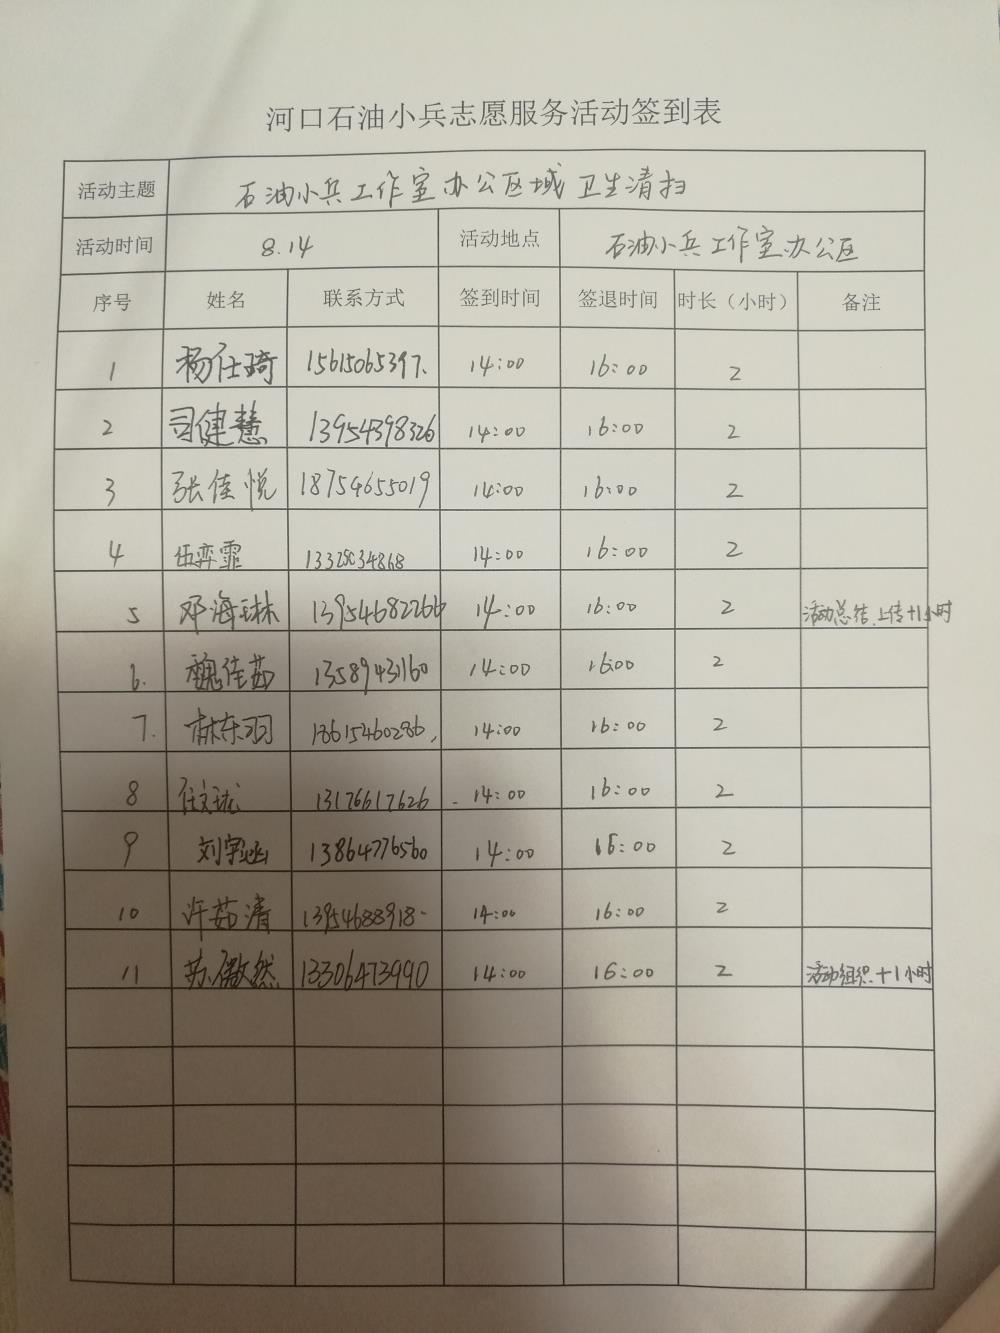 河口石油小兵志愿服务活动签到表
活动主题 石油小兵工作室办公区域卫生清扫
活动时间 8.14 活动地点 石油小兵工作室办公区
序号 姓名 联系方式 签到时间 签退时间 时长（小时） 备注
1 杨仕琦 15615065397. 14:00 16:00 2
2 司健慧 13954398326 14:00 16:00 2
3 张佳悦 18754655019 14:00 16:00 2
4 伍弈霏 14:00 16:00 2
5 邓海琳 13954682266 14:00 16:00 2 活动总结、上传+1小时
6. 魏佳茹 13589431160 14:00 16:00 2
7. 林东羽 18615460286, 14:00 16:00 2
8 任文珑 13176617626 14:00 16:00 2
9 刘宇涵 13864776560 14:00 16:00 2
10 许茹清 13954688918 14:00 16:00 2
11 苏傲然 13306473990 14:00 16:00 2 活动组织+1小时